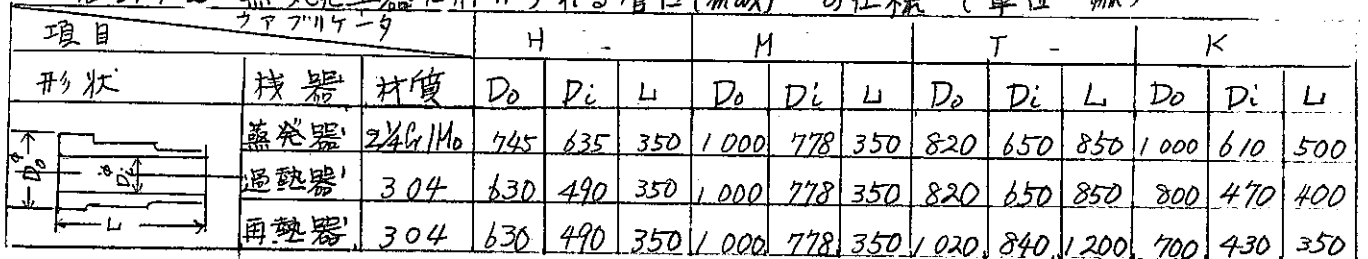 蒸発器に用いられる管台(max)の仕様 (単位 mm)
項目 ファブリケータ H M T K
形状 機器 材質 Do Di L Do Di L Do Di L Do Di L
蒸発器 2¼Cr1Mo 745 635 350 1000 778 350 820 650 850 1000 610 500
過熱器 304 630 490 350 1000 778 350 820 650 850 800 470 400
再熱器 304 630 490 350 1000 778 350 1020 840 1200 700 430 350
Do Di L